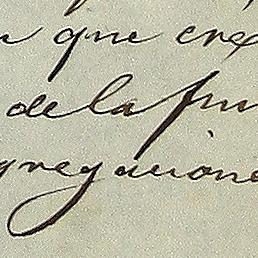 que cre
de la fun
gregacione